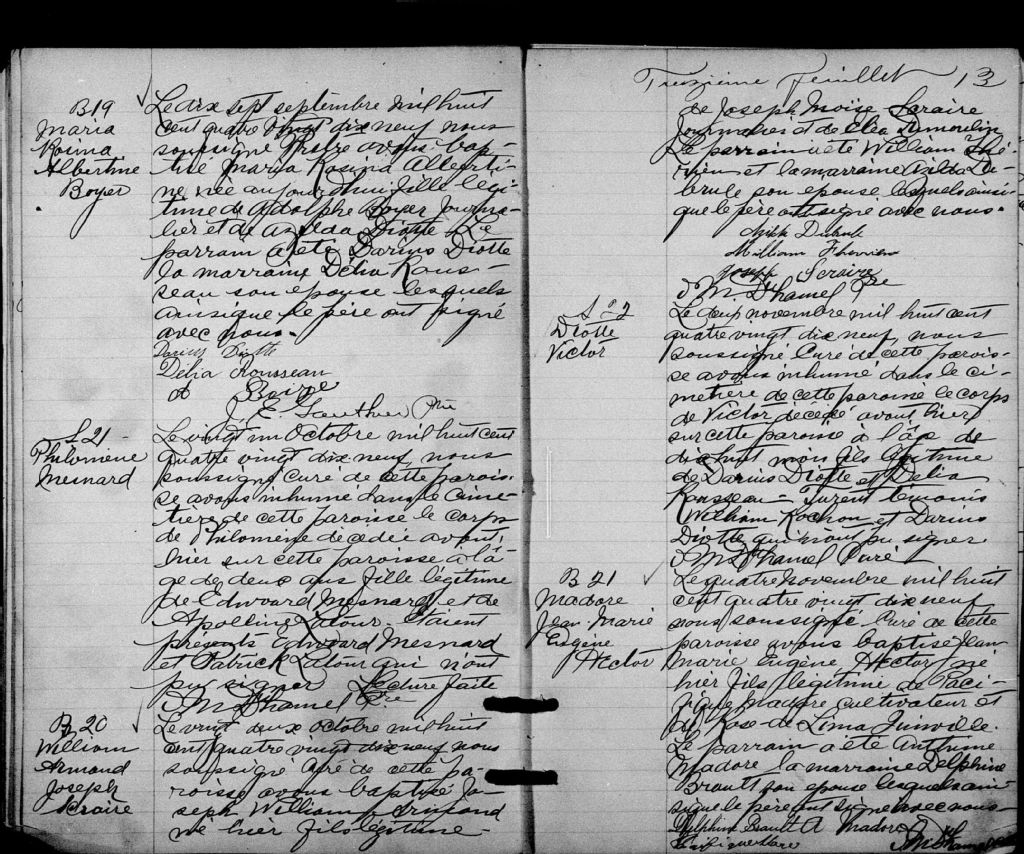 B19
Maria
Rosina
Albertine
Boyer
Le dix sept septembre mil huit
cent quatre vingt dix neuf nous
soussigné Prêtre avons bap-
tisé Maria Rosina Alberti-
ne née aujourd'hui fille légi-
time de Adolphe Boyer journa-
lier et de Azilda Diotte Le
parrain a été Darius Diotte
la marraine Délia Rous-
seau son épouse lesquels
ainsi que le père ont signé
avec nous.
Darius Diotte
Délia Rousseau
J. E. Gauthier Ptre
S 21
Philomène
Mesnard
Le vingt un Octobre mil huit cent
quatre vingt dix neuf, nous
soussigné curé de cette parois-
se avons inhumé dans le cime-
tière de cette paroisse le corps
de Philomène décédée avant
hier sur cette paroisse à l'â-
ge de deux ans fille légitime
de Edwoard Mesnard et de
Apolline Latour. Étaient
présents Edwoard Mesnard
et Patrick Latour qui n'ont
pu signer Lecture faite
Ptre
B. 20
William
Armand
Joseph
Le vingt deux octobre mil huit
cent quatre vingt dix neuf nous
soussigné curé de cette pa-
roisse avons baptisé Jo-
seph William Armand
né hier fils légitime
Treizième Feuillet 13
de Joseph Moïse
journalier et de Cléa Dumoulin
Le parrain a été William
et la marraine
son épouse lesquels ainsi
que le père ont signé avec nous.
William
Joseph
Ptre
S 2
Diotte
Victor
Le deux novembre mil huit cent
quatre vingt dix neuf, nous
soussigné Curé de cette parois-
se avons inhumé dans le ci-
metière de cette paroisse le corps
de Victor décédé avant hier
sur cette paroisse à l'âge de
dix huit mois fils légitime
de Darius Diotte et Délia
Rousseau - Furent témoins
William Rochon et Darius
Diotte qui n'ont pu signer
Curé
B 21
Madore
Jean Marie
Eugène
Hector
Le quatre novembre mil huit
cent quatre vingt dix neuf
nous soussigné Curé de cette
paroisse avons baptisé Jean
Marie Eugène Hector né
hier fils légitime de Paci-
fique Madore cultivateur et
de Rose-de Lima Juinville.
Le parrain a été Anthime
Madore la marraine Delphine
Brault son épouse lesquels ain-
si que le père ont signé avec nous
Delphine Brault A Madore